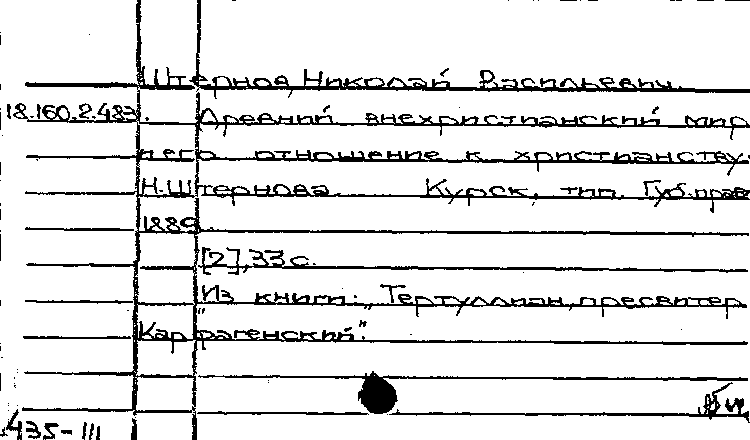 Штернов, Николай Васильевич.
18.160.2.483. Древний внехристианский мир
и его отношение к христианству.
Н.Штернова. Курск, тип. Губ.прав
1889.
[2], 33 с.
Из книги: „Тертуллиан, пресвитер
Карфагенский".
435-III